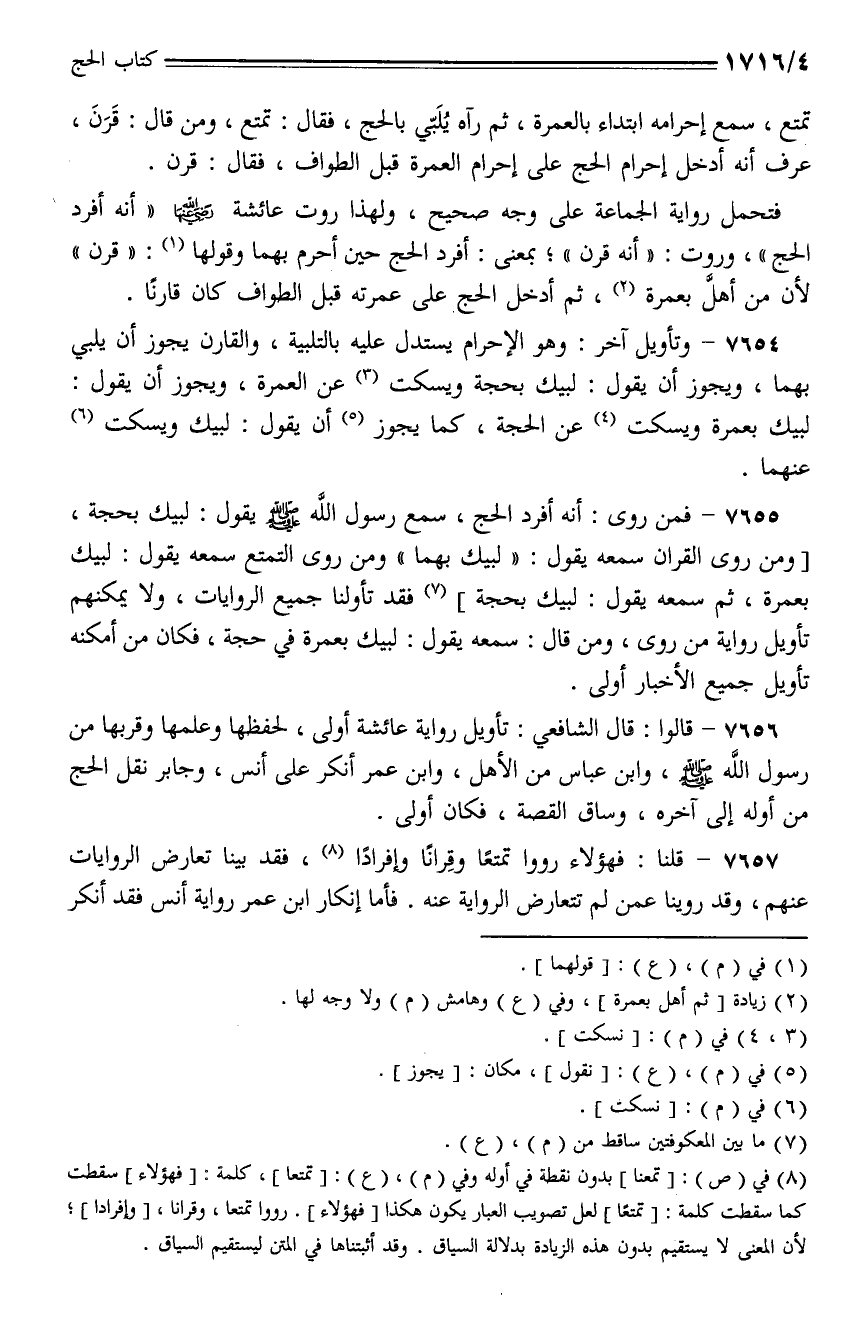 ١٧١٦/٤ كتاب الحج
تمتع ، سمع إحرامه ابتداء بالعمرة ، ثم رآه يُلَبِّي بالحج ، فقال : تمتع ، ومن قال : قَرَنَ ،
عرف أنه أدخل إحرام الحج على إحرام العمرة قبل الطواف ، فقال : قرن .
فتحمل رواية الجماعة على وجه صحيح ، ولهذا روت عائشة رضي الله عنها « أنه أفرد
الحج » ، وروت : « أنه قرن » ؛ بمعنى : أفرد الحج حين أحرم بهما وقولها (١) : « قرن »
لأن من أهلَّ بعمرة (٢) ، ثم أدخل الحج على عمرته قبل الطواف كان قارنًا .
٧٦٥٤ – وتأويل آخر : وهو الإحرام يستدل عليه بالتلبية ، والقارن يجوز أن يلبي
بهما ، ويجوز أن يقول : لبيك بحجة ويسكت (٣) عن العمرة ، ويجوز أن يقول :
لبيك بعمرة ويسكت (٤) عن الحجة ، كما يجوز (٥) أن يقول : لبيك ويسكت (٦)
عنهما .
٧٦٥٥ – فمن روى : أنه أفرد الحج ، سمع رسول اللَّه ﷺ يقول : لبيك بحجة ،
[ ومن روى القران سمعه يقول : « لبيك بهما » ومن روى التمتع سمعه يقول : لبيك
بعمرة ، ثم سمعه يقول : لبيك بحجة ] (٧) فقد تأولنا جميع الروايات ، ولا يمكنهم
تأويل رواية من روى ، ومن قال : سمعه يقول : لبيك بعمرة في حجة ، فكان من أمكنه
تأويل جميع الأخبار أولى .
٧٦٥٦ – قالوا : قال الشافعي : تأويل رواية عائشة أولى ، لحفظها وعلمها وقربها من
رسول اللَّه ﷺ ، وابن عباس من الأهل ، وابن عمر أنكر على أنس ، وجابر نقل الحج
من أوله إلى آخره ، وساق القصة ، فكان أولى .
٧٦٥٧ – قلنا : فهؤلاء رووا تمتعًا وقِرانًا وإفرادًا (٨) ، فقد بينا تعارض الروايات
عنهم ، وقد روينا عمن لم تتعارض الرواية عنه . فأما إنكار ابن عمر رواية أنس فقد أنكر
(١) في ( م ) ، ( ع ) : [ قولهما ] .
(٢) زيادة [ ثم أهل بعمرة ] ، وفي ( ع ) وهامش ( م ) ولا وجه لها .
(٣ ، ٤) في ( م ) : [ نسكت ] .
(٥) في ( م ) ، ( ع ) : [ نقول ] ، مكان : [ يجوز ] .
(٦) في ( م ) : [ نسكت ] .
(٧) ما بين المعكوفتين ساقط من ( م ) ، ( ع ) .
(٨) في ( ص ) : [ تمعنا ] بدون نقطة في أوله وفي ( م ) ، ( ع ) : [ تمتعا ] ، كلمة : [ فهؤلاء ] سقطت
كما سقطت كلمة : [ تمتعًا ] لعل تصويب العبار يكون هكذا [ فهؤلاء ] . رووا تمتعا ، وقرانا ، [ وإفرادا ] ؛
لأن المعنى لا يستقيم بدون هذه الزيادة بدلالة السياق . وقد أثبتناها في المتن ليستقيم السياق .